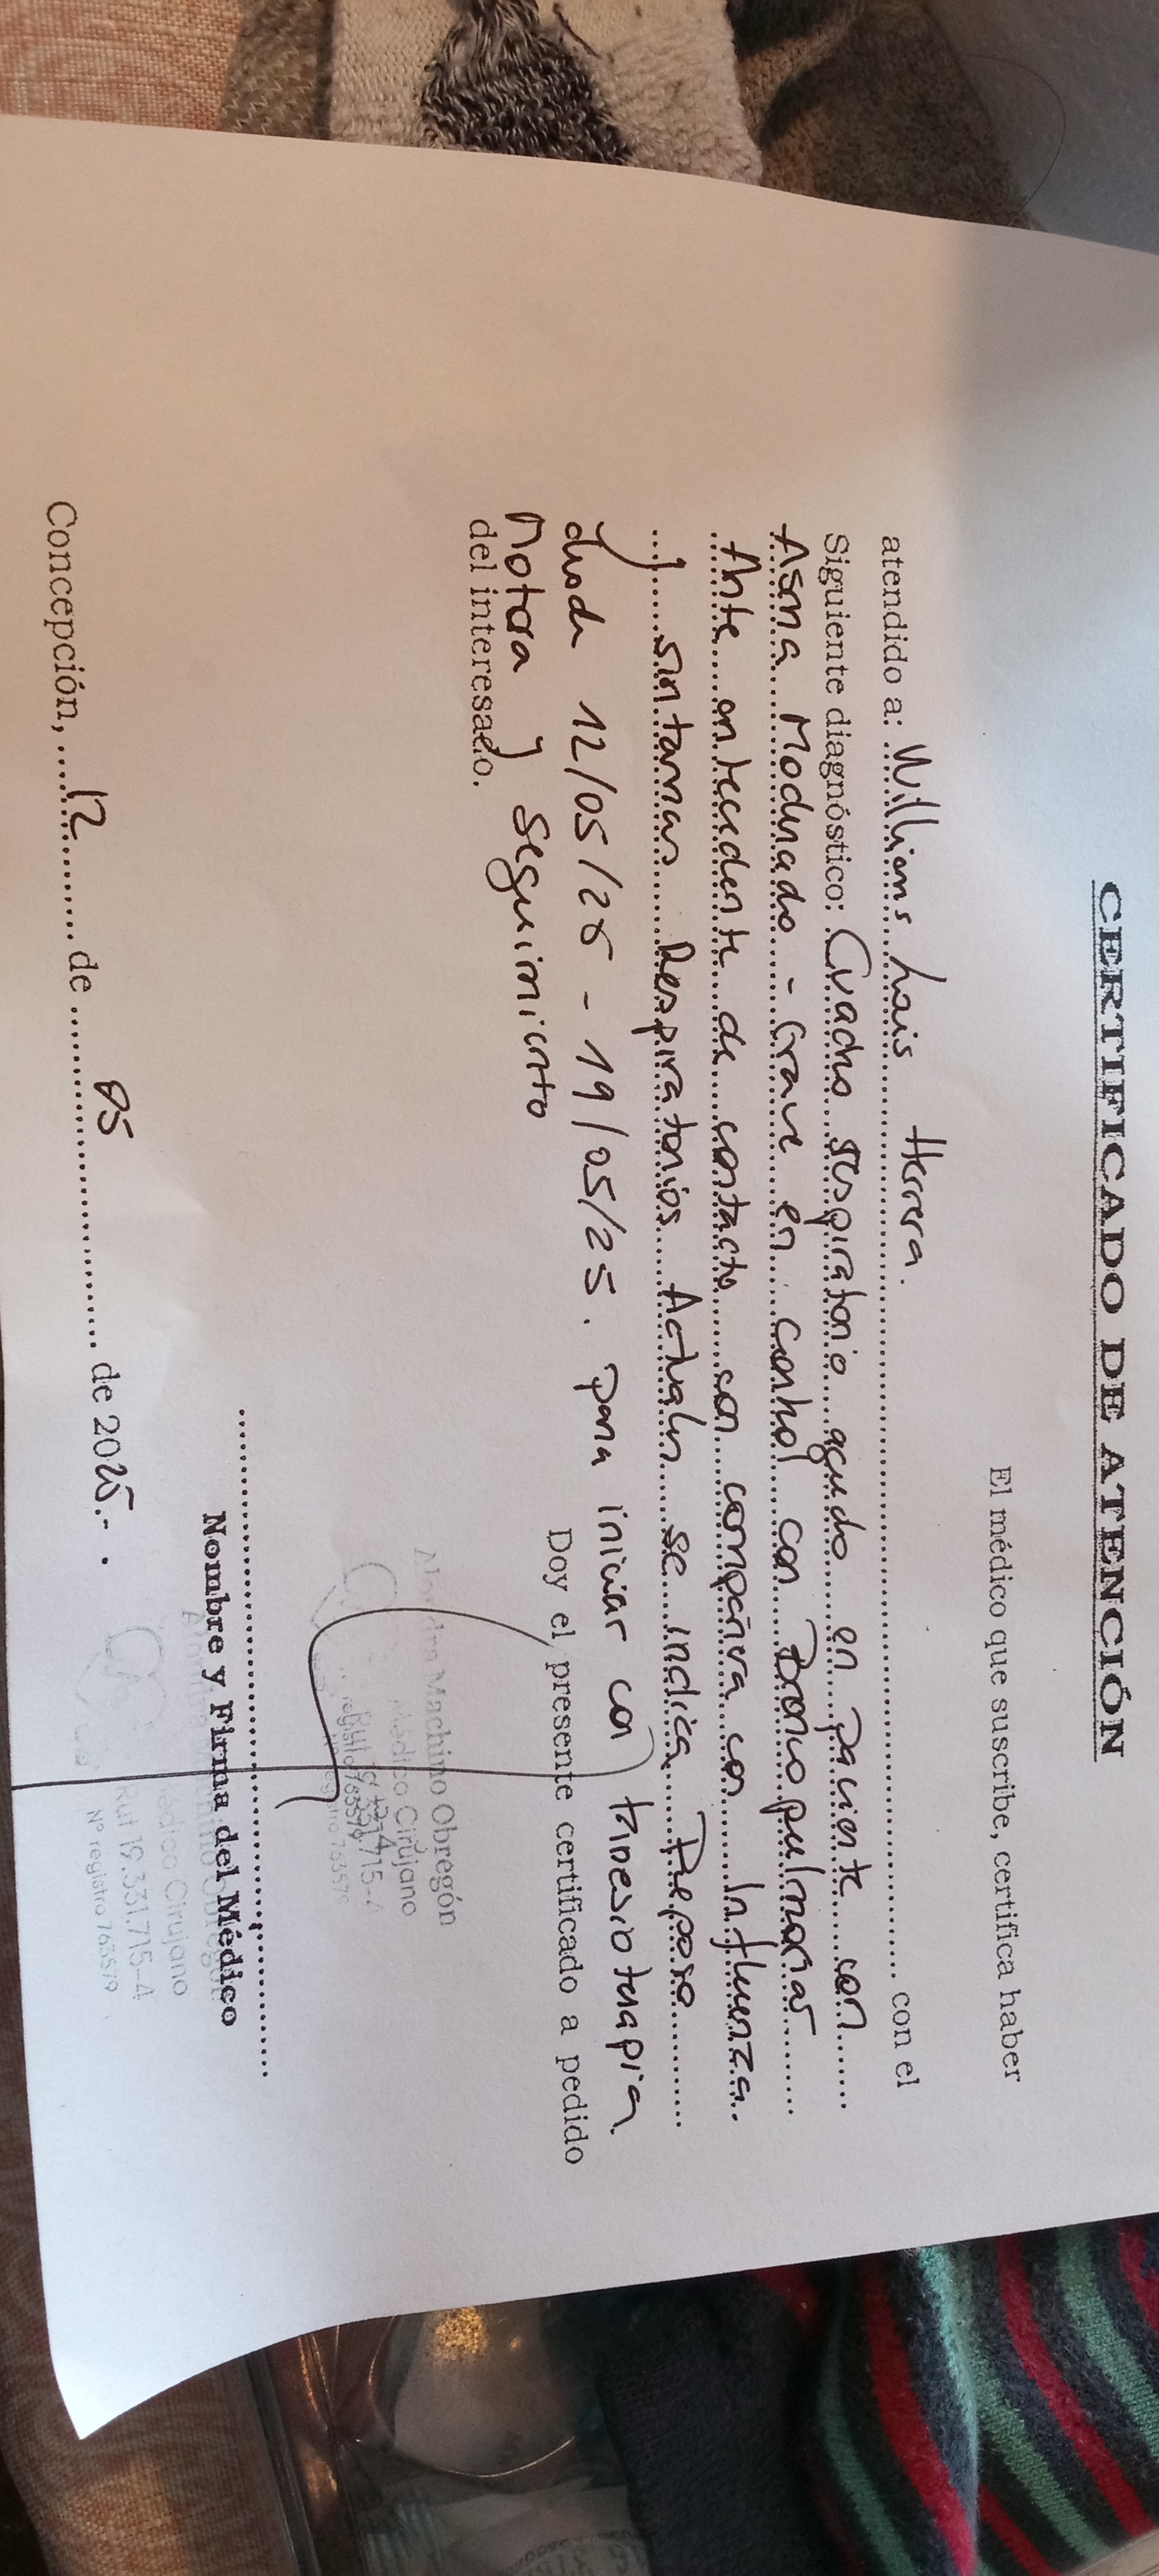 CERTIFICADO DE ATENCIÓN
El médico que suscribe, certifica haber
atendido a: Williams Lais Herrera. con el
Siguiente diagnóstico: Cuadro respiratorio agudo en paciente con
Asma Moderado - Grave en control con Broncopulmonar
Ante antecedente de contacto con compañera con Influenza
y sintomas Respiratorios Actuales se indica Reposo
desde 12/05/25 - 19/05/25. para iniciar con kinesioterapia
Doy el presente certificado a pedido
Motora y seguimiento
del interesado.
Alondra Machino Obregón
Médico Cirujano
Nombre y Firma del Médico
Médico Cirujano
Rut 19.331.715-4
Nº registro 763579
Concepción, 12 de 05 de 2025.-